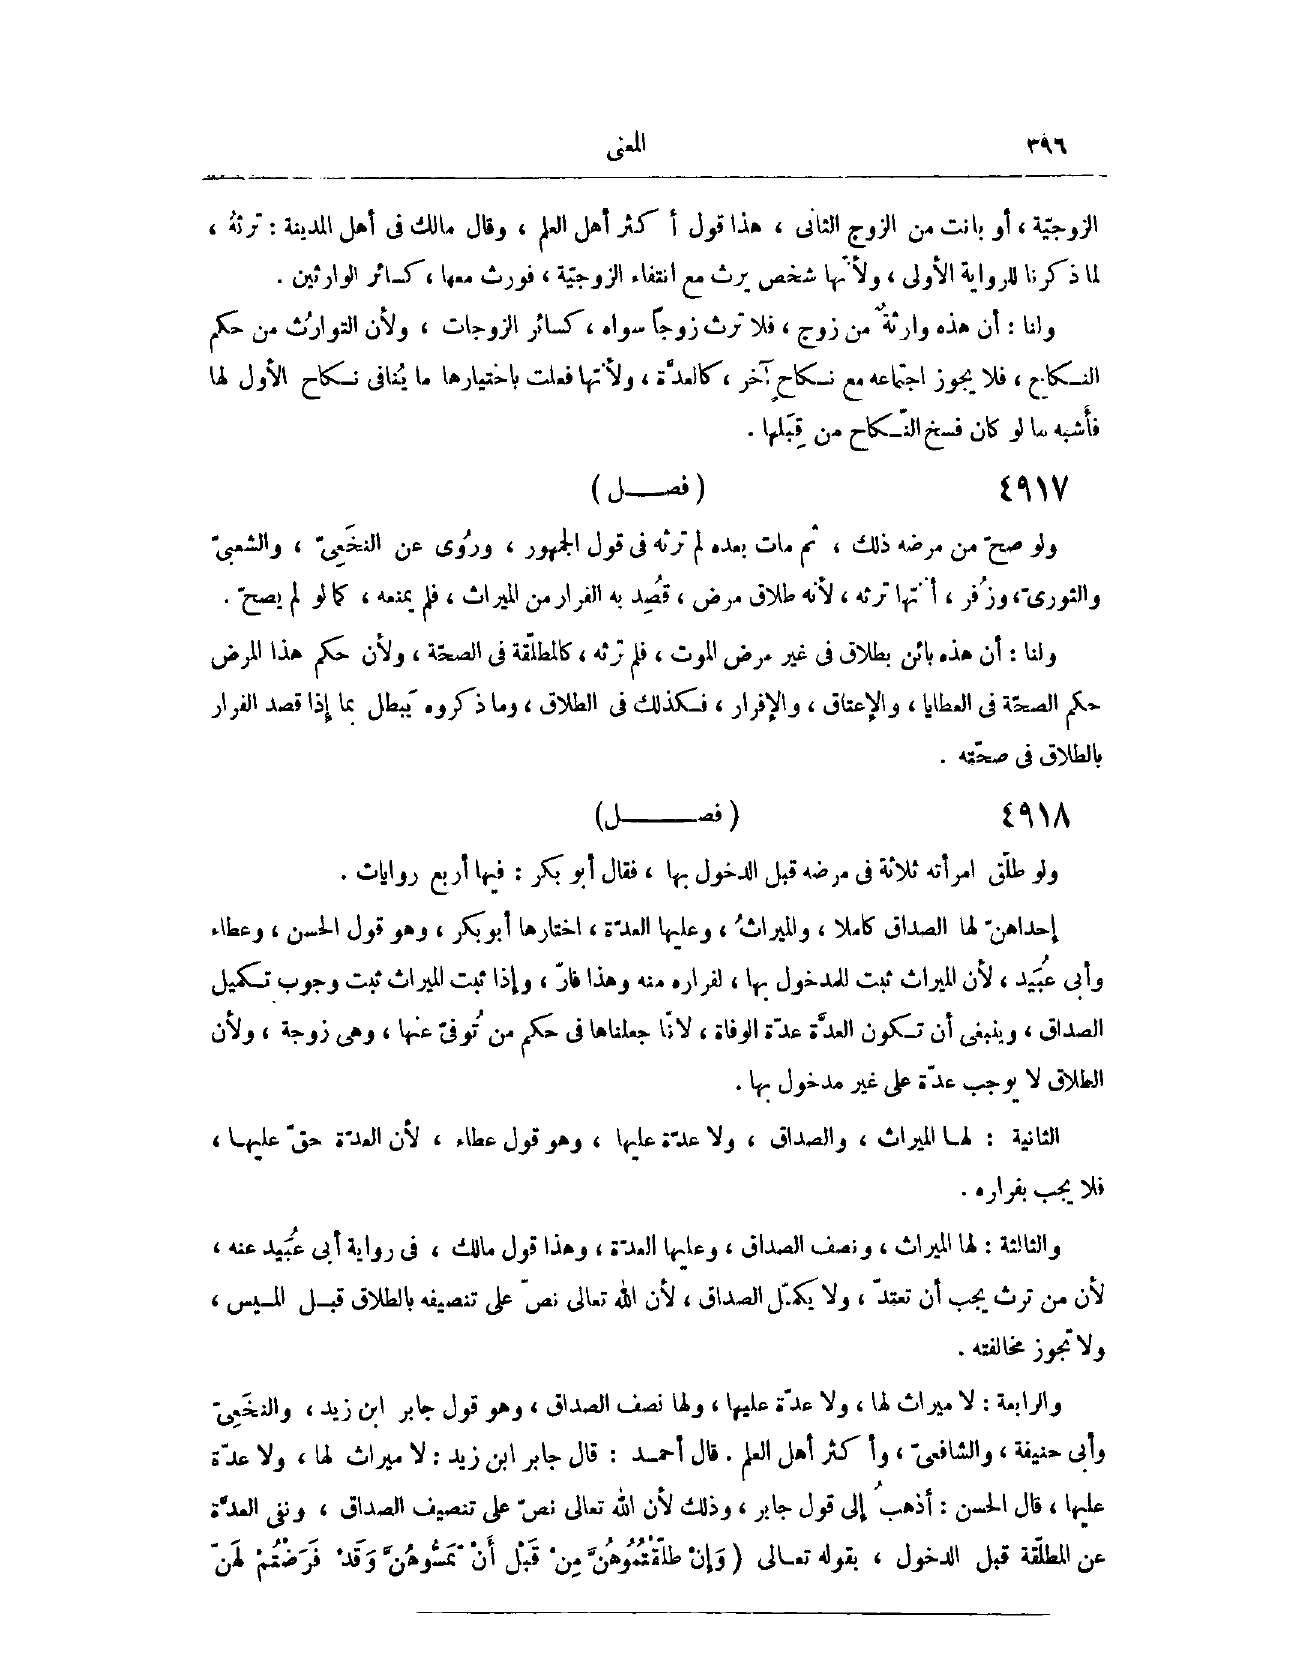 ٣٩٦ المغنى
الزوجيّة ، أو بانت من الزوج الثانى ، هذا قول أكثر أهل العلم ، وقال مالك فى أهل المدينة : ترثهُ ،
لما ذكرنا للرواية الأولى ، ولأنّها شخص يرث مع انتفاء الزوجيّة ، فورث معها ، كسائر الوارثين .
ولنا : أن هذه وارثةٌ من زوج ، فلا ترث زوجاً سواه ، كسائر الزوجات ، ولأن التوارُث من حكم
النـكاح ، فلا يجوز اجتماعه مع نـكاحٍ آخر ، كالعدَّة ، ولأنّها فعلت باختيارها ما يُنافى نـكاح الأول لها
فأَشبه ما لو كان فسخ النّـكاح من قِبَلها .
٤٩١٧ ( فصـــل )
ولو صحّ من مرضه ذلك ، ثم مات بعده لم ترثه فى قول الجمهور ، ورُوى عن النخَعِىّ ، والشعبىّ
والثورىّ، وزُفر ، أنّها ترثه ، لأنه طلاق مرض ، قُصِد به الفرار من الميراث ، فلم يمنعه ، كما لو لم يصحّ .
ولنا : أن هذه بائن بطلاق فى غير مرض الموت ، فلم ترثه ، كالمطلّقة فى الصحّة ، ولأن حكم هذا المرض
حكم الصحّة فى العطايا ، والإعتاق ، والإقرار ، فـكذلك فى الطلاق ، وما ذكروه يَبطل بما إذا قصد الفرار
بالطلاق فى صحّته .
٤٩١٨ ( فصـــــل )
ولو طلّق امرأته ثلاثة فى مرضه قبل الدخول بها ، فقال أبو بكر : فيها أربع روايات .
إحداهنّ لها الصداق كاملا ، والميراثُ ، وعليها العدّة ، اختارها أبو بكر ، وهو قول الحسن ، وعطاء
وأبى عُبَيد ، لأن الميراث ثبت للمدخول بها ، لفراره منه وهذا فارّ ، وإذا ثبت الميراث ثبت وجوب تـكميل
الصداق ، وينبغى أن تـكون العدَّة عدّة الوفاة ، لانّا جعلناها فى حكم من تُوفىّ عنها ، وهى زوجة ، ولأن
الطلاق لا يوجب عدّة على غير مدخول بها .
الثانية : لهـا الميراث ، والصداق ، ولا عدّة عليها ، وهو قول عطاء ، لأن العدّة حقّ عليهـا ،
فلا يجب بفراره .
والثالثة : لها الميراث ، ونصف الصداق ، وعليها العدّة ، وهذا قول مالك ، فى رواية أبى عُبَيد عنه ،
لأن من ترث يجب أن تعتدّ ، ولا يكمّل الصداق ، لأن الله تعالى نصّ على تنصيفه بالطلاق قبـل المسيس ،
ولا تجوز مخالفته .
والرابعة : لا ميراث لها ، ولا عدّة عليها ، ولها نصف الصداق ، وهو قول جابر ابن زيد ، والنخَعِىّ
وأبى حنيفة ، والشافعىّ ، وأكثر أهل العلم . قال أحمـد : قال جابر ابن زيد : لا ميراث لها ، ولا عدّة
عليها ، قال الحسن : أذهبُ إلى قول جابر ، وذلك لأن الله تعالى نصّ على تنصيف الصداق ، ونفى العدَّة
عن المطلّقة قبل الدخول ، بقوله تعـالى ( وَإِنْ طَلَّقْتُمُوهُنَّ مِنْ قَبْلِ أَنْ تَمَسُّوهُنَّ وَقَدْ فَرَضْتُمْ لَهُنّ